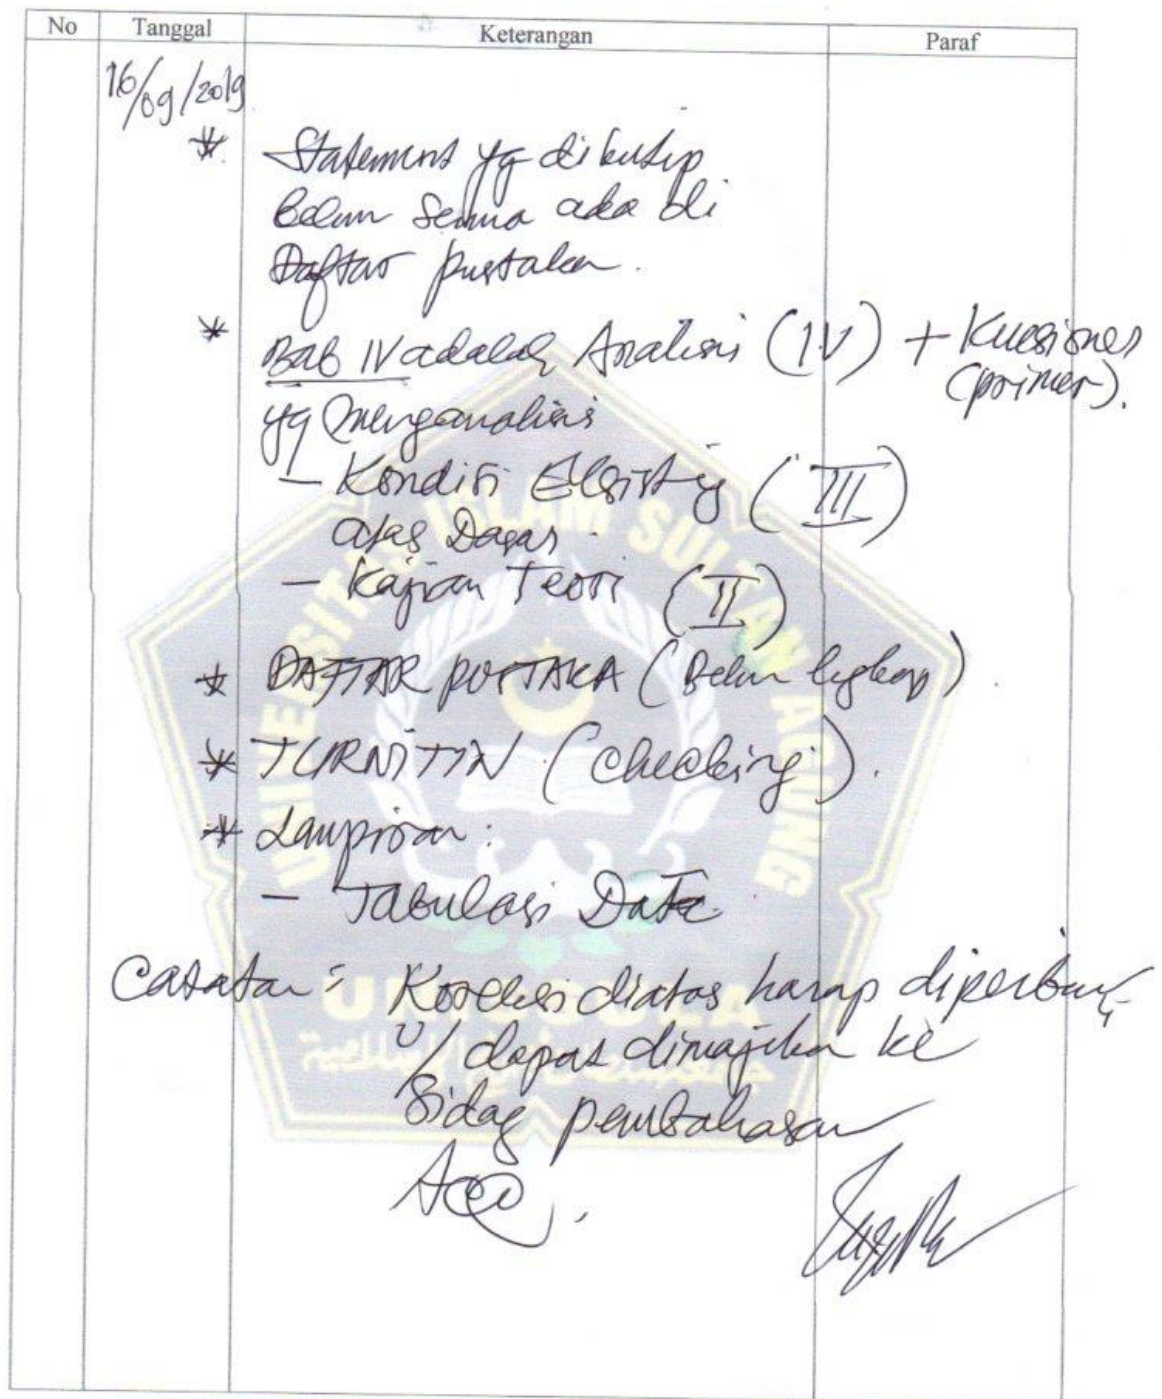 No Tanggal Keterangan Paraf
16/09/2019
* Statement yg dikutip
Belum Semua ada di
Daftar pustaka.
* Bab IV adalah Analisis (IV) + Kuesioner
(primer).
yg menganalisis
- Kondisi Eksisting (III)
atas Dasar
- Kajian Teori (II)
* DAFTAR PUSTAKA (Belum lengkap).
* TURNITIN (checking).
* Lampiran:
- Tabulasi Data
Catatan: Koreksi diatas harap diperbaiki
U/ dapat dimajukan ke
Sidang pembahasan
Acc.
UNIVERSITAS ISLAM SULTAN AGUNG
UNISSULA